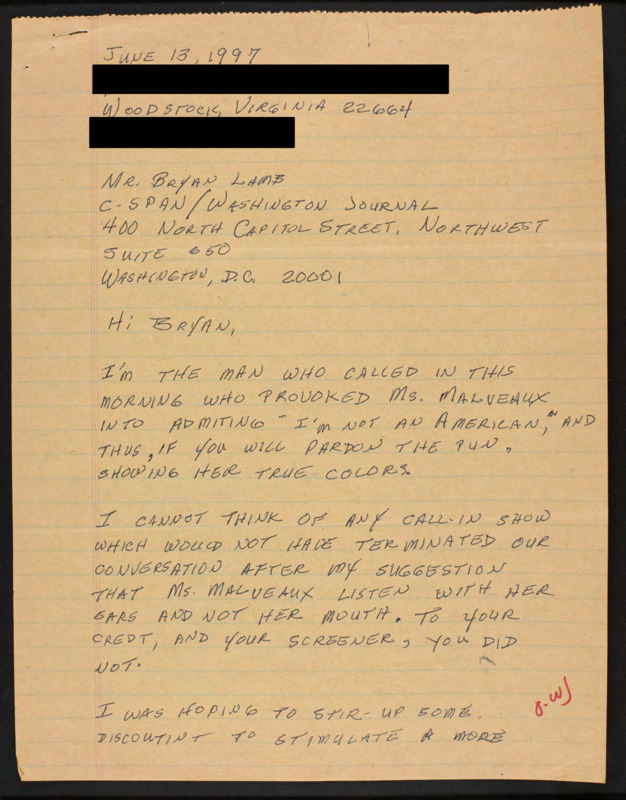 JUNE 13, 1997
WOODSTOCK, VIRGINIA 22664
MR. BRYAN LAMB
C-SPAN/WASHINGTON JOURNAL
400 NORTH CAPITOL STREET, NORTHWEST
SUITE 650
WASHINGTON, D.C. 20001
Hi BRYAN,
I'M THE MAN WHO CALLED IN THIS
MORNING WHO PROVOKED MS. MALVEAUX
INTO ADMITING "I'M NOT AN AMERICAN," AND
THUS, IF YOU WILL PARDON THE PUN,
SHOWING HER TRUE COLORS.
I CANNOT THINK OF ANY CALL-IN SHOW
WHICH WOULD NOT HAVE TERMINATED OUR
CONVERSATION AFTER MY SUGGESTION
THAT MS. MALVEAUX LISTEN WITH HER
EARS AND NOT HER MOUTH. TO YOUR
CREDT, AND YOUR SCREENER, YOU DID
NOT.
I WAS HOPING TO STIR-UP SOME
DISCOUTINT TO STIMULATE A MORE